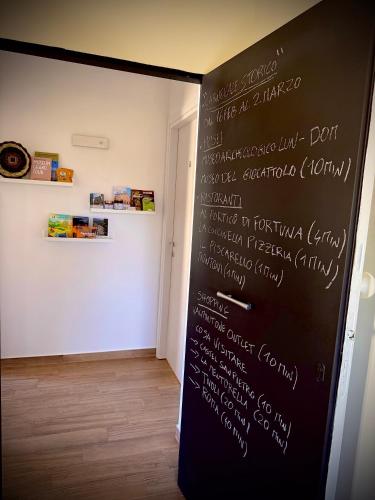 "CARNEVALE STORICO"
DAL 16 FEB AL 2 MARZO
MUSEI
MUSEO ARCHEOLOGICO LUN-DOM
MUSEO DEL GIOCATTOLO (10MIN)
RISTORANTI
AL PORTICO DI FORTUNA (4MIN)
LA COCCINELLA PIZZERIA (1MIN)
IL PISCARELLO (1MIN)
(1MIN)
SHOPPING
VALMONTONE OUTLET (10MIN)
COSA VISITARE
→ CASTEL SAN PIETRO (10 MIN)
→ MENTORELLA (20 MIN)
→ TIVOLI (20 MIN)
→ ROMA (40 MIN)